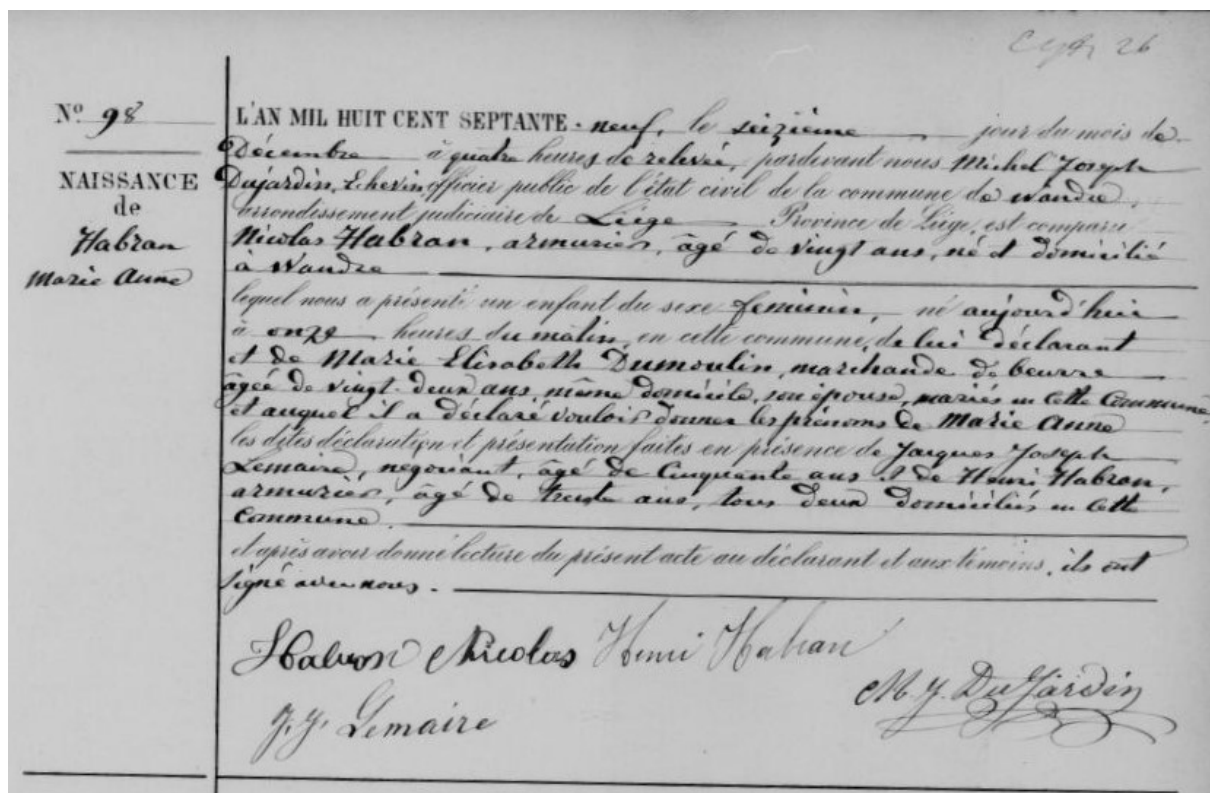 26
Nº 98
NAISSANCE
de
Habran
Marie Anne
L'AN MIL HUIT CENT SEPTANTE - neuf, le seizième jour du mois de
Décembre à quatre heures de relevée, pardevant nous Michel Joseph
Dujardin, Echevin officier public de l'état civil de la commune de Wandre,
arrondissement judiciaire de Liége Province de Liége, est comparu
Nicolas Habran, armurier, âgé de vingt ans, né et domicilié
à Wandre
lequel nous a présenté un enfant du sexe feminin, né aujourd'hui
à onze heures du matin, en cette commune, de lui déclarant
et de Marie Elisabeth Dumoulin, marchande de beurre
âgée de vingt-deux ans, même domicile, son épouse, mariés en cette Commune,
et auquel il a déclaré vouloir donner les prénoms de Marie Anne
les dites déclaration et présentation faites en présence de Jacques Joseph
Lemaire, negociant, âgé de Cinquante ans et de Henri Habran,
armurier, âgé de trente ans, tous deux domiciliés en cette
Commune.
et après avoir donné lecture du présent acte au déclarant et aux témoins, ils ont
signé avec nous.
Habran Nicolas Henri Habran
M. J. DuJardin
J. J. Lemaire